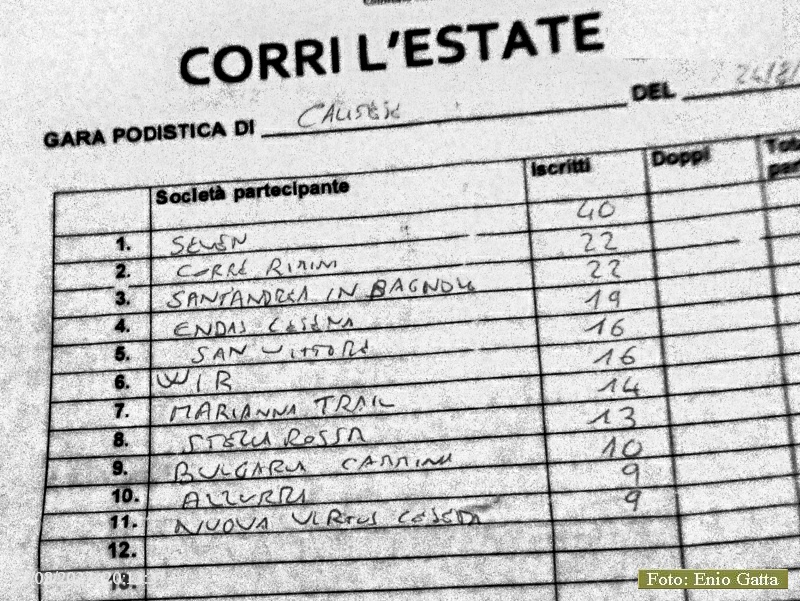 CORRI L'ESTATE
GARA PODISTICA DI DEL
Società partecipante Iscritti Doppi
1. SEVEN 40
2. CORRE RIMINI 22
3. SANT'ANDREA IN BAGNOLO 22
4. ENDAS CESENA 19
5. SAN VITTORE 16
6. WIR 16
7. MARIANNA TRAIL 14
8. STELLA ROSSA 13
9. BULGARIA CAMMINA 10
10. AZZURRA 9
11. NUOVA VIRTUS CESENA 9
12.
13.
Foto: Enio Gatta